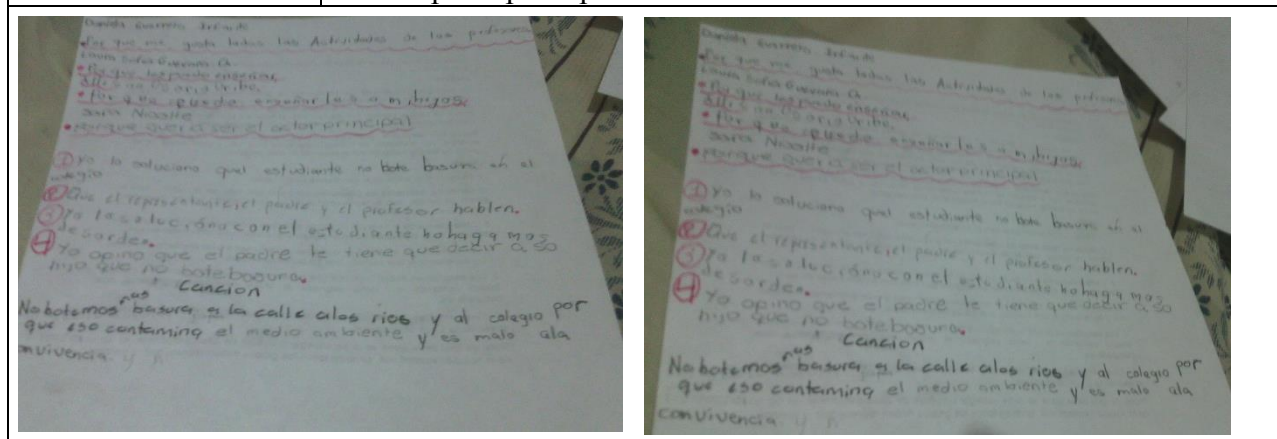 Daniela Guerrero
Por que me gusta todas las Actividades de las profesoras
Laura Sofia Guevara G.
Por que les puedo enseñar
Por que puedo enseñarles a mis hijos
Sara Nicolle
porque queria ser el actor principal
① yo lo soluciono quel estudiante no bote basura en el
colegio
② Que el representante, el padre y el profesor hablen.
③ Yo la soluciono con el estudiante no haga mas
desorden.
④ Yo opino que el padre le tiene que decir a so
hijo que no bote basura.
Cancion
No botemos mas basura a la calle alos rios y al colegio por
que eso contamina el medio ambiente y es malo ala
convivencia y
Daniela Guerrero
Por que me gusta todas las Actividades de las profesoras
Laura Sofia Guevara G.
Por que les puedo enseñar
Por que puedo enseñarles a mis hijos
Sara Nicolle
porque queria ser el actor principal
① yo lo soluciono quel estudiante no bote basura en el
colegio
② Que el representante, el padre y el profesor hablen.
③ Yo la soluciono con el estudiante no haga mas
desorden.
④ Yo opino que el padre le tiene que decir a so
hijo que no bote basura.
Cancion
No botemos mas basura a la calle alos rios y al colegio por
que eso contamina el medio ambiente y es malo ala
convivencia y